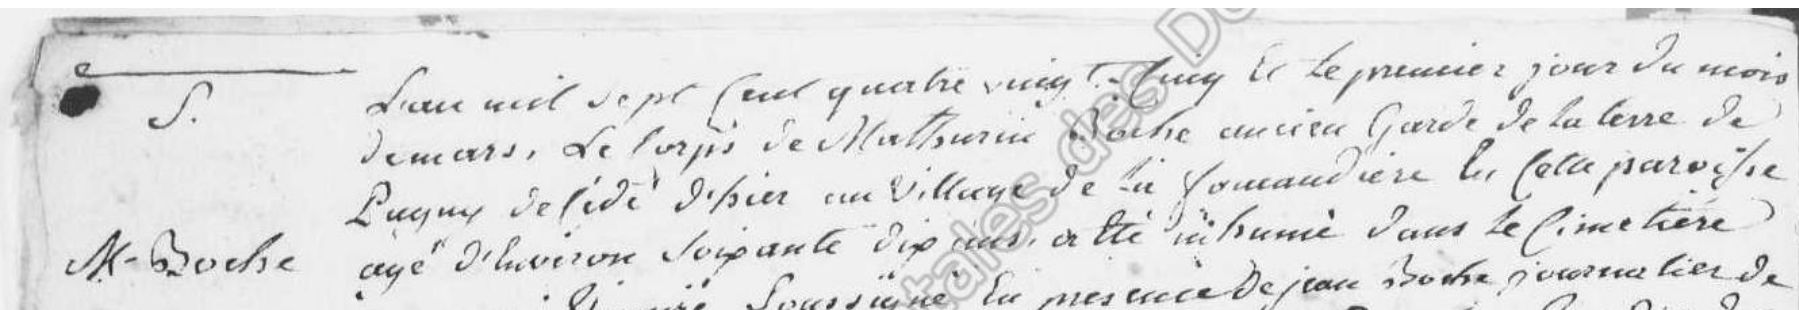 S.
L'an mil sept cent quatre vingt cinq et le premier jour du mois
de mars, le corps de Mathurin Boche ancien garde de la terre de
Pugny décédé d'hier au village de la en cette paroisse
M. Boche
agé d'environ soixante dix ans, a été inhumé dans le cimetière
soussigné en presence de jean Boche journalier de